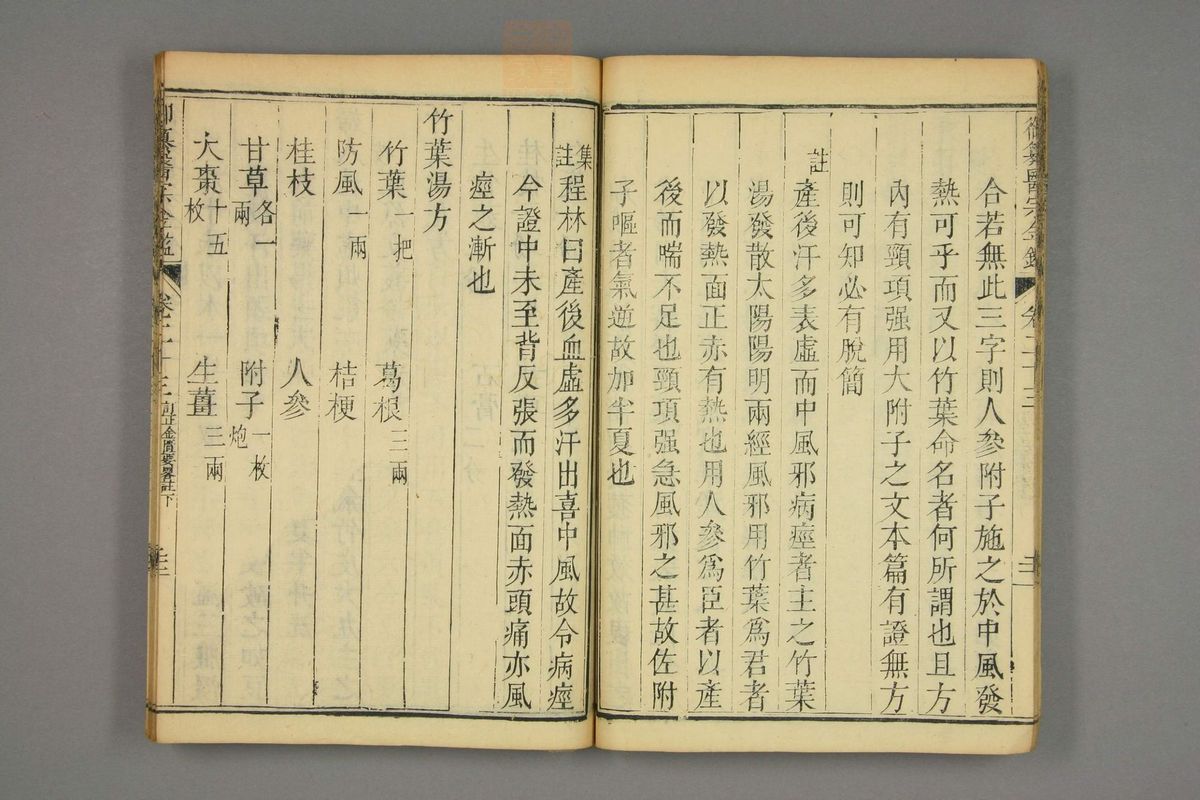 合若無此三字則人參附子施之於中風發
熱可乎而又以竹葉命名者何所謂也且方
內有頸項强用大附子之文本篇有證無方
則可知必有脫簡
註
產後汗多表虛而中風邪病痙者主之竹葉
湯發散太陽陽明兩經風邪用竹葉爲君者
以發熱面正赤有熱也用人參爲臣者以產
後而喘不足也頸項强急風邪之甚故佐附
子嘔者氣逆故加半夏也
集註
程林曰產後血虛多汗出喜中風故令病痙
今證中未至背反張而發熱面赤頭痛亦風
痙之漸也
竹葉湯方
竹葉一把 葛根三兩
防風一兩 桔梗
桂枝 人參
甘草各一兩 附子一枚炮
大棗十五枚 生薑三兩